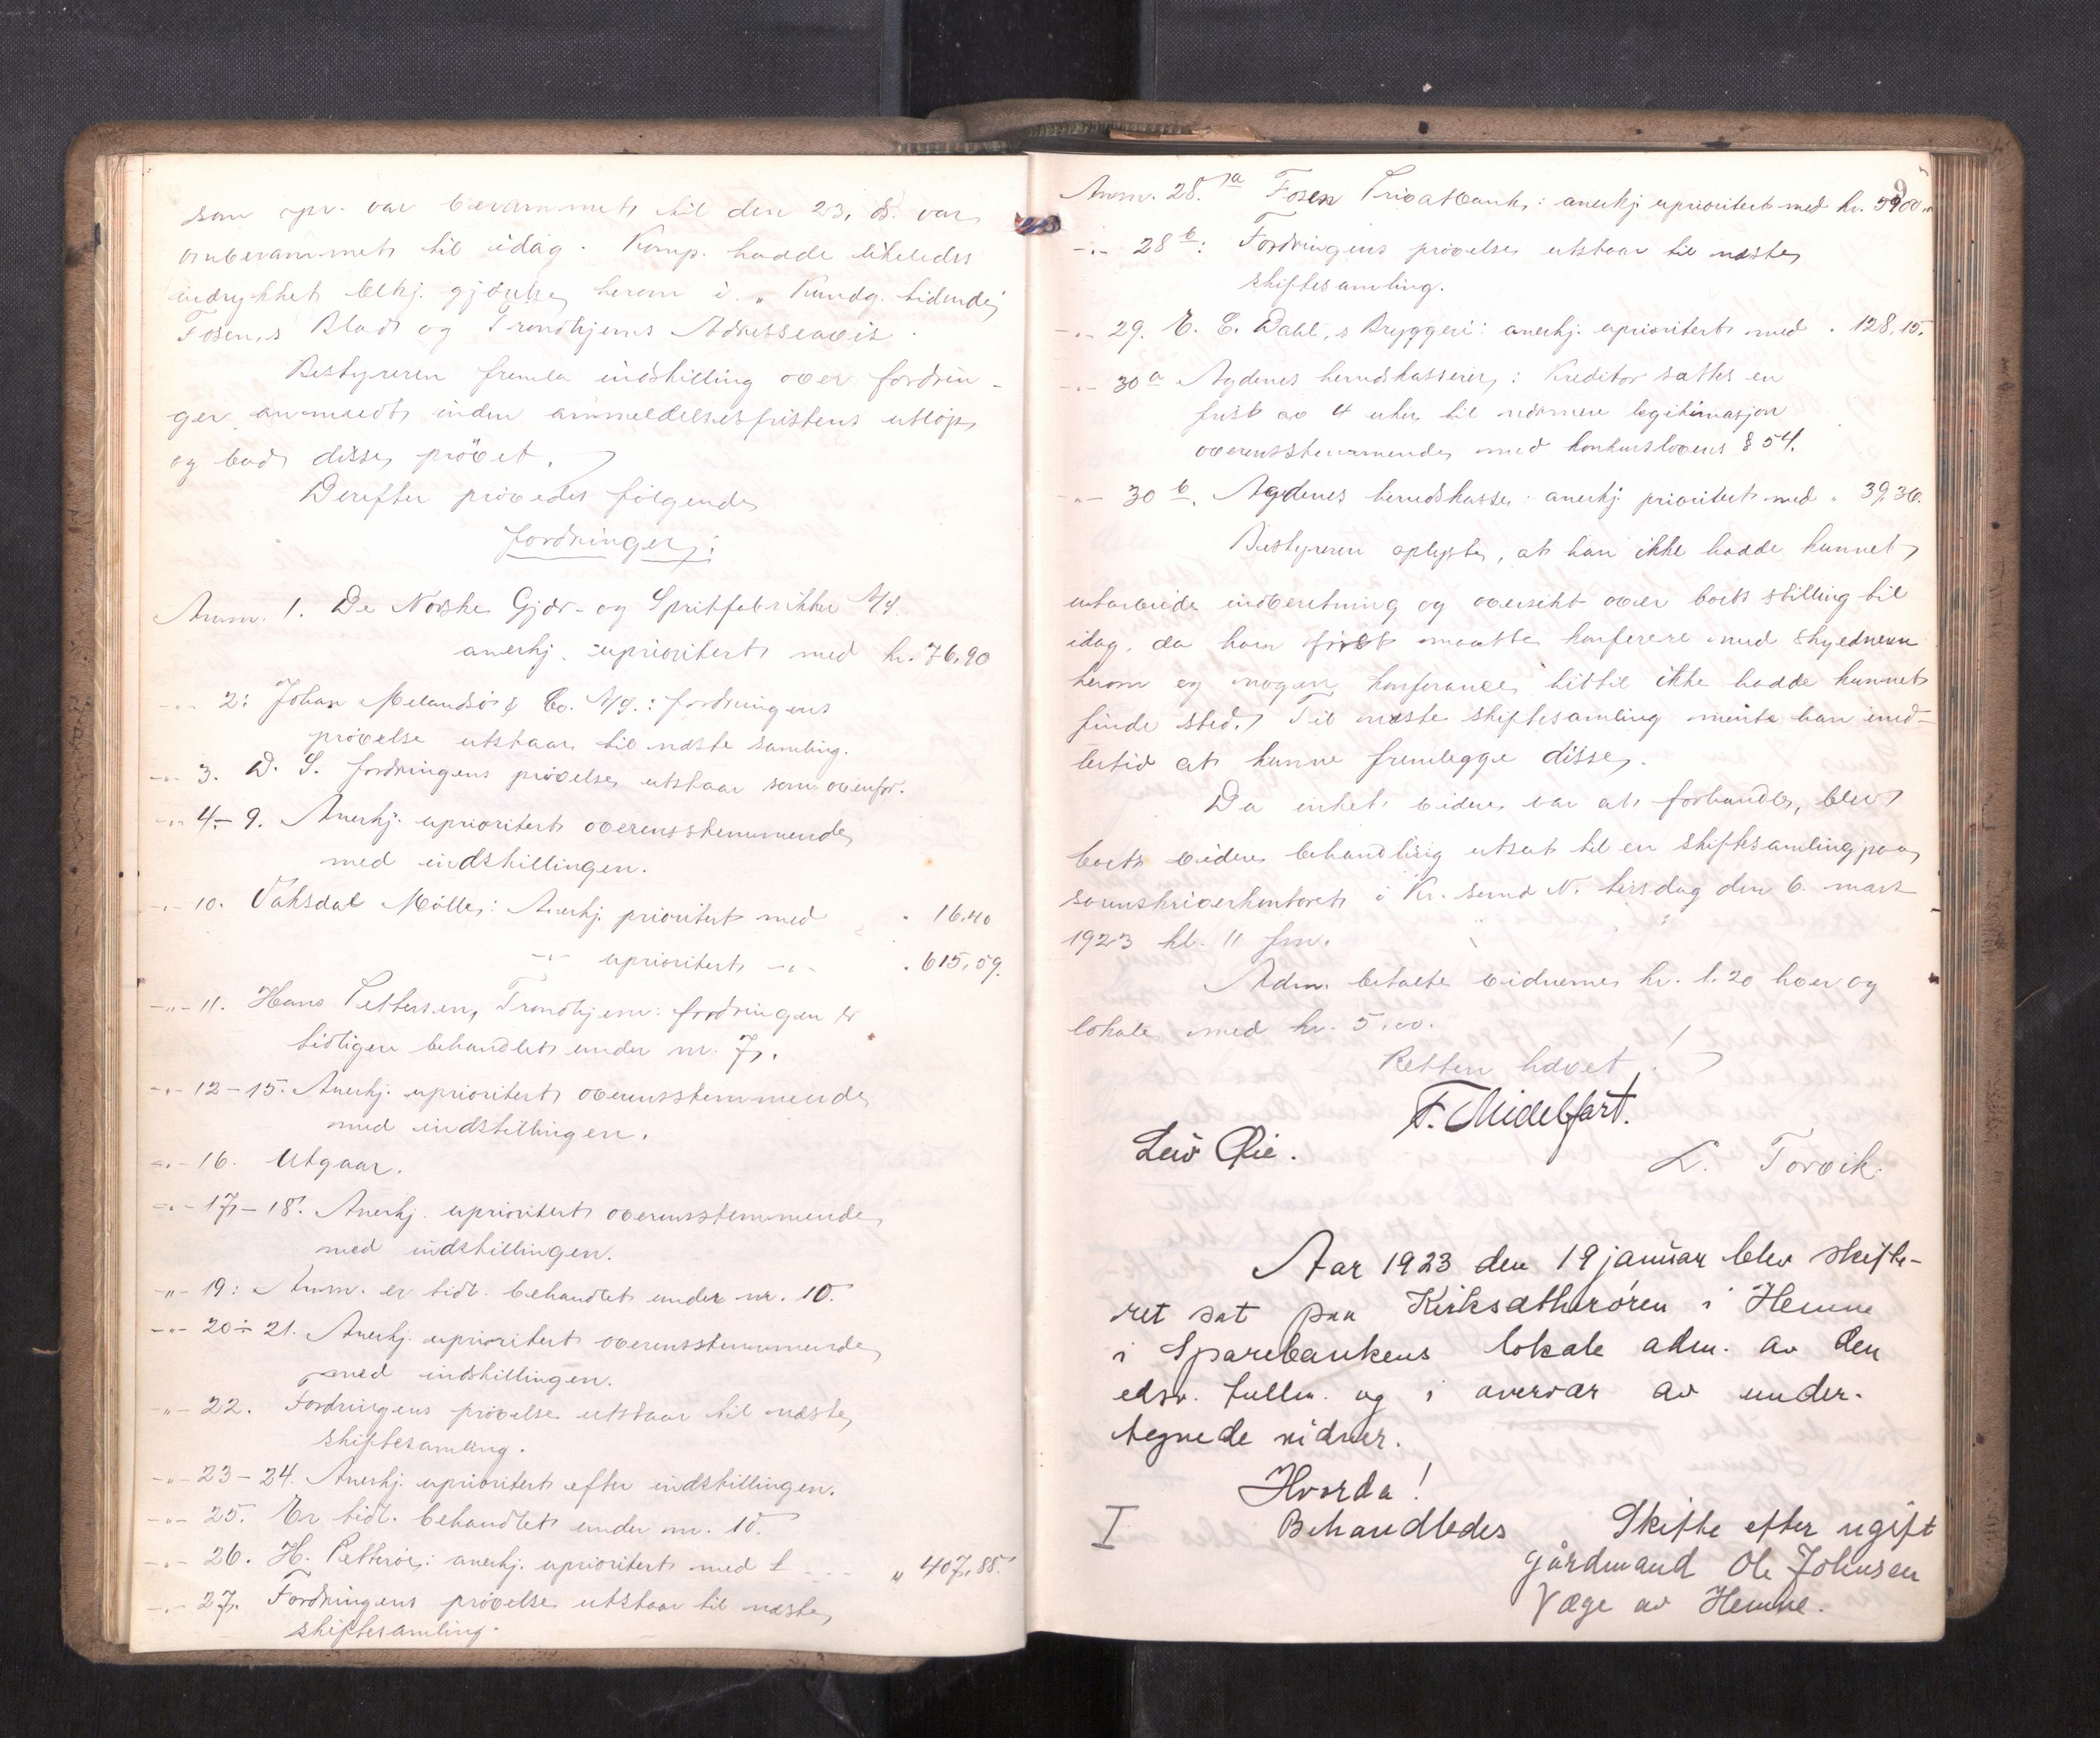 som opr. var berammet til den 23. ds. var
omberammet til idag. Komp. hadde likeledes
indrykket bekj. gjörelse herom i „Kundg. tidende",
Fosen,s Blad og Trondhjems Adresseavis.
Bestyreren fremla indstilling over fordrin-
ger anmeldt inden anmeldelsesfristens utlöp,
og bad disse prövet.
Derefter prövedes fölgende
Fordringer:
Anm. 1. De Norske Gjær- og Spritfabrikker A/S.
anerkj. uprioritert med kr. 76,90
-"- 2: Johan Melandsö & Co. A/S.: fordringens
prövelse utstaar til næste samling.
-"- 3. D. S. fordringens prövelse utstaar som ovenfor.
-"- 4-9. Anerkj. uprioritert overensstemmende
med indstillingen.
-"- 10. Vaksdal Mölle: Anerkj. prioritert med " 16.40
-"- uprioritert -"- " 615,59.
-"- 11. Hans Pettersen, Trondhjem: fordringen er
tidligere behandlet under nr. 7.
-"- 12-15. Anerkj. uprioritert overensstemmende
med indstillingen.
-"- 16. Utgaar.
-"- 17-18. Anerkj. uprioritert overensstemmende
med indstillingen.
-"- 19: Anm. er tidl. behandlet under nr. 10.
-"- 20-21. Anerkj. uprioritert overensstemmende
med indstillingen.
-"- 22. Fordringens prövelse utstaar til næste
skiftesamling.
-"- 23-24. Anerkj. uprioritert efter indstillingen.
-"- 25. Er tidl. behandlet under nr. 10.
-"- 26. H. Petteröe: anerkj. uprioritert med " 407,88.
-"- 27. Fordringens prövelse utstaar til næste
skiftesamling.
9
Anm. 28.a Fosen Privatbank: anerkj uprioritert med kr.
-"- 28 b: Fordringens prövelse utstaar til næste
skiftesamling.
-"- 29. E. C. Dahl,s Bryggeri: anerkj. uprioritert med " 128,15.
-"- 30 a Agdenes herredskasserer: Kreditor sattes en
frist av 4 uker til nærmere legitimasjon
overensstemmende med konkurslovens § 54.
-"- 30 b. Agdenes herredskasse: anerkj prioritert med " 39,36.
Bestyreren oplyste, at han ikke hadde kunnet
utarbeide indberetning og oversikt over boets stilling til
idag, da han först maatte konferere med skyldneren
herom og nogen konferance hittil ikke hadde kunnet
finde sted. Til næste skiftesamling mente han imid-
lertid at kunne fremlegge disse.
Da intet videre var at forhandle, blev
boets videre behandling utsat til en skiftesamling paa
sorenskriverkontoret i Kr.sund N. tirsdag den 6. mars
1923 kl. 11 fm.
Adm. betalte vidnerne kr. 1.20 hver og
lokale med kr. 5.00.
Retten hævet!
F. Midelfart.
Leiv Øie.
L. Torvik.
Aar 1923 den 19 januar blev skifte-
ret sat paa Kirksætherören i Hemne
i Sparebankens lokale adm. av den
edsv. fullm. og i overvær av under-
tegnede vidner.
Hvorda!
I Behandledes Skifte efter ugift
gårdmand Ole Johnsen
Væge av Hemne.